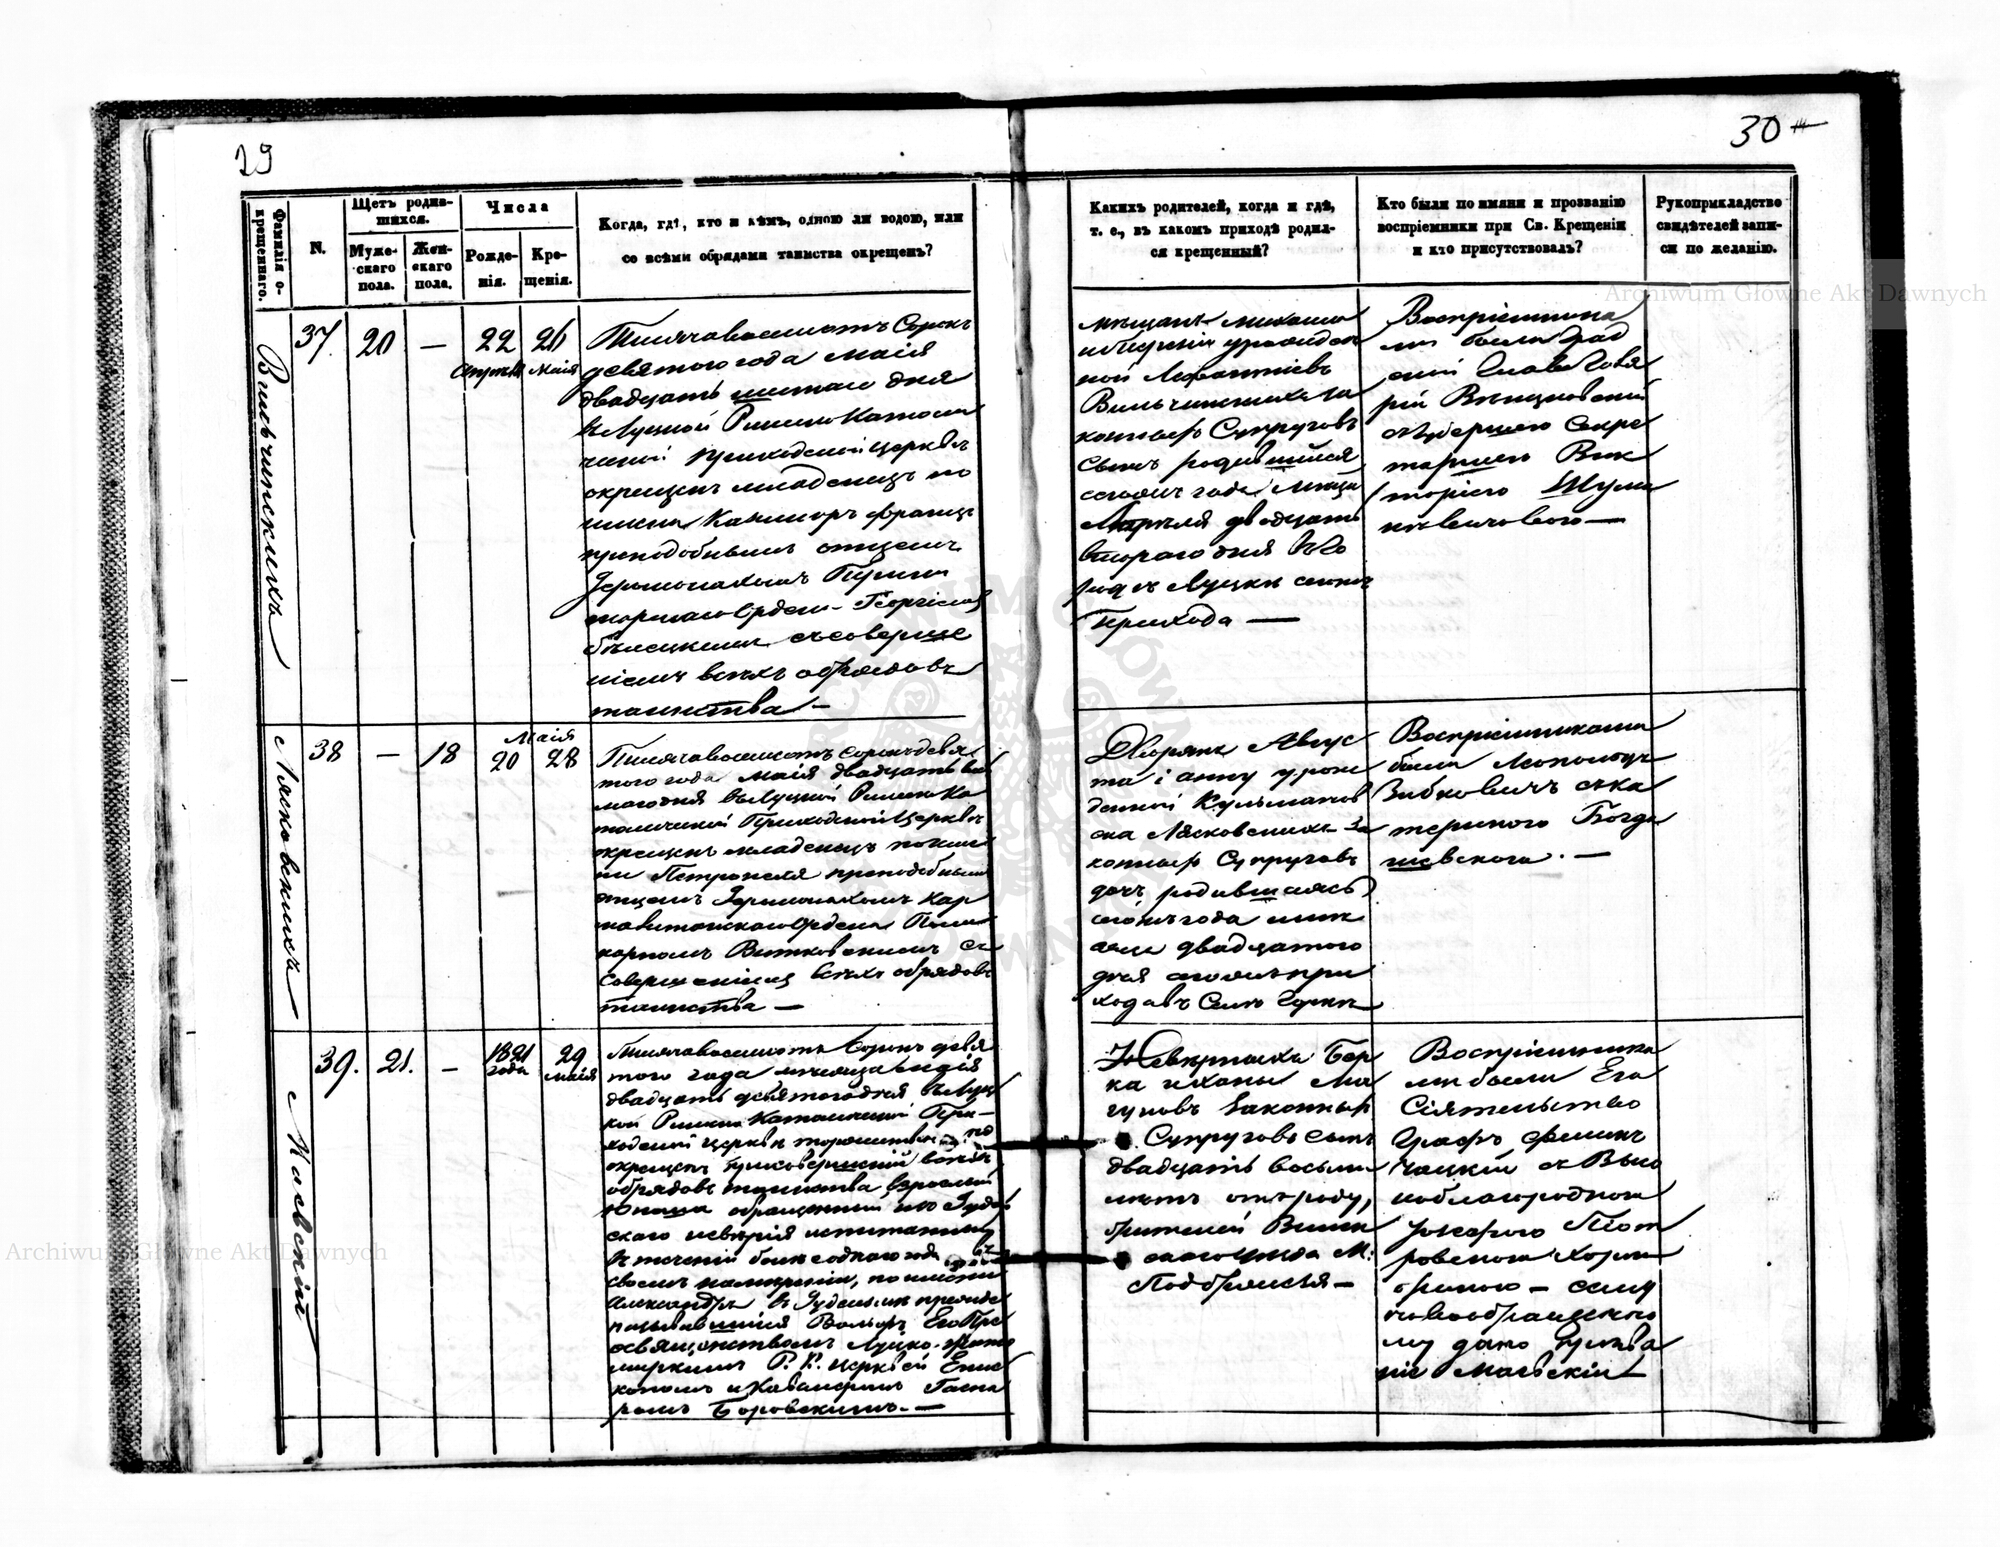 29
30
Фамилія окрещеннаго.
N.
Щетъ родившихся.
Мужескаго пола.
Женскаго пола.
Числа
Рожденія.
Крещенія.
Когда, гдѣ, кто и кѣмъ, одною ли водою, или
со всѣми обрядами таинства окрещенъ?
Какихъ родителей, когда и гдѣ,
т. е., въ какомъ приходѣ родил-
ся крещенный?
Кто были по имяни и прозванію
воспріемники при Св. Крещеніи
и кто присутствовалъ?
Рукоприкладство
свидѣтелей запи-
си по желанію.
Вильчинскихъ
37.
20
—
22
Апрѣля
26
Маія
Тысяча восемсотъ Сорокъ
девятого года Маія
двадцать шестаго дня
въ Луцкой Римско Католи
ческой Приходской Церквѣ
окрещенъ младенецъ по
имени
преподобнымъ отцемъ
Іеромонахомъ
Ордена Георгіемъ
съ соверше
ніемъ всѣхъ обрядовъ
таинства —
Мѣщанъ Михаила
урожден
ной
Вильчинскихъ за
конныхъ Супруговъ
Сынъ родившійся
сегожъ года Мѣсяца
Апрѣля двадцать
втораго дня въ Го
родѣ Луцкѣ сегожъ
Прихода —
Воспріемника
ми были Град
скій Глава
рій
съ Губернскою Секре
таршею Вик
торіею Шума
новичовою —
Лясковскихъ
38
—
18
Маія
20
28
Тысяча восемсотъ сорокъ девя
того года Маія двадцать вось
могодня въ Луцкой Римско Ка
толической Приходской Церквѣ
окрещенъ младенецъ по име
ни Петронеля преподобнымъ
отцемъ Іеромонахомъ Кар
Ордена Поли
карпомъ Витковскимъ съ
Совершеніемъ всѣхъ обрядовъ
таинства —
Дворянъ Авгус
та і Анны урож
денной Кульманов
ска Лясковскихъ За
конныхъ Супруговъ
дочь родившаяся
сегожъ года
двадцатого
дня сегожъ при
хода въ Селѣ
Воспріемниками
были Леопольдъ
Зибковичъ съ Ека
териною Богда
шевского. —
Маевскій
39.
21.
—
1821
года
29
Маія
Тысяча восемсотъ Сорокъ девя
того года мѣсяца Маія
двадцать девятогодня въ Луц
кой Римско Католической При-
ходской церквѣ торжественно
окрещенъ при совершеніи всѣхъ
обрядовъ таинства взрослый
Юноша обращенный изъ Іудей
скаго невѣрія испытанный
въ теченіи болѣе одного года въ
своемъ намѣреніи, по имени
Александръ въ Іудействѣ прежде
называвшійся Вольфъ Его Пре
освященствомъ Луцко-Жито
мирскимъ Р. К. церквей Епис
копомъ и Кавалеромъ Гаспа
ромъ Боровскимъ. —
Невѣрныхъ Бер
ка и Ханы Ма
гуновъ Законныхъ
Супруговъ Сынъ
двадцать восьми
лѣтъ отъ роду,
жителей
скаго уѣзда М:
Подбрянья —
Воспріемника
ми были Его
Сіятельство
Графъ Феликъ
Чацкій съ Высо
коблагородною
Іозефою Піот
ровского Хорун
жиною — сему
новообращенно
му дано прозва
ніе Маевскій
Archiwum Główne Akt Dawnych
Archiwum Główne Akt Dawnych
ARCHIWUM GŁÓWNE AKT DAWNYCH